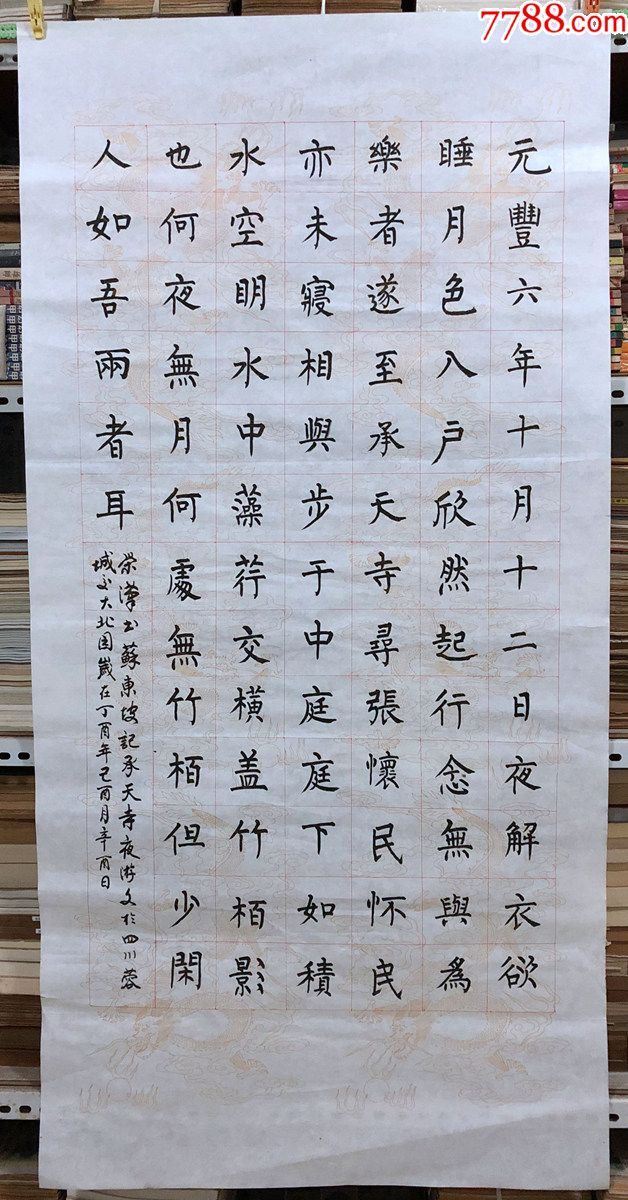 7788.com
元豐六年十月十二日夜解衣欲
睡月色入戶欣然起行念無與為
樂者遂至承天寺尋張懷民怀民
亦未寢相與步于中庭庭下如積
水空明水中藻荇交橫盖竹栢影
也何夜無月何處無竹栢但少閑
人如吾兩者耳
荣漢书蘇東坡記承天寺夜游文於四川蓉
城交大北园歲在丁酉年己酉月辛酉日